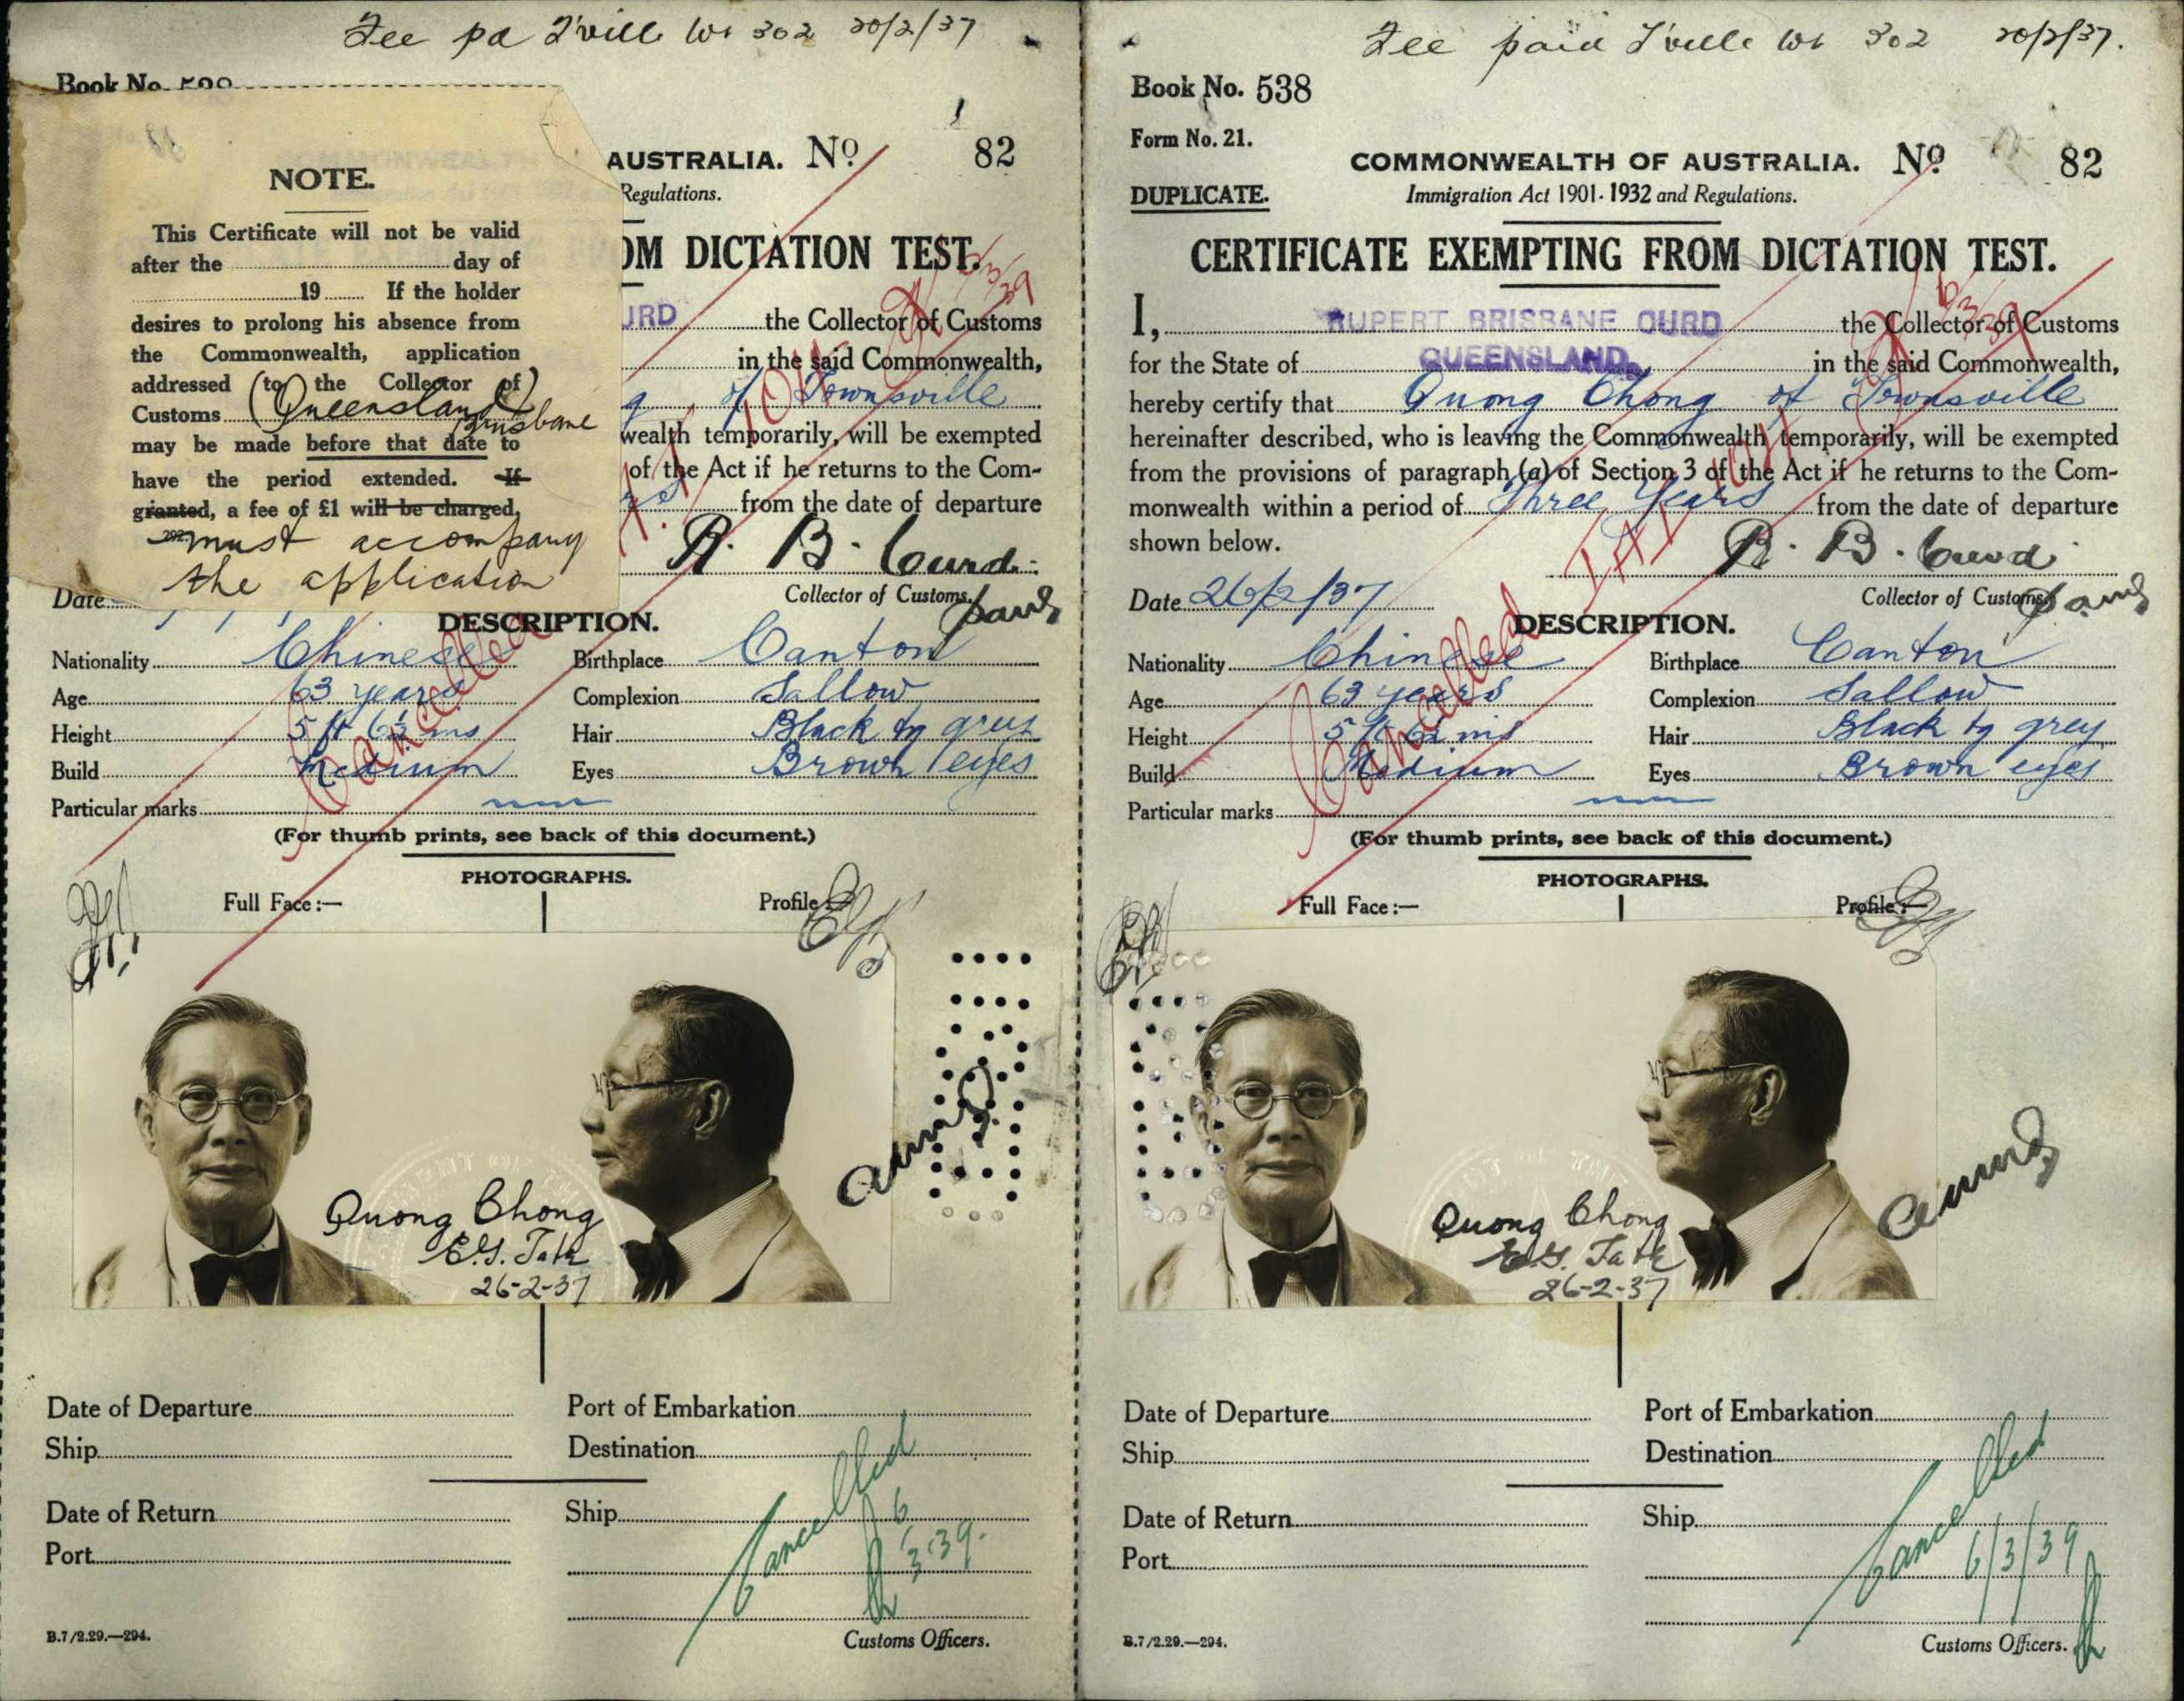 Fee pd T'ville
302 20/2/37
Book No.
NOTE.
This Certificate will not be valid
after the day of
19 If the holder
desires to prolong his absence from
the Commonwealth, application
addressed (to the Collector of)
Customs (Queensland Brisbane
may be made before that date to
have the period extended. If
granted, a fee of £1 will be charged,
must accompany
the application
AUSTRALIA. No 82
Regulations.
OM DICTATION TEST.
URD the Collector of Customs
in the said Commonwealth,
g of Townsville
wealth temporarily, will be exempted
of the Act if he returns to the Com-
rs from the date of departure
R. B. Curd.
Collector of Customs.
Date
DESCRIPTION.
Nationality Chinese Birthplace Canton
Age 63 years Complexion Sallow
Height 5 ft 6½ ins Hair Black to grey
Build Medium Eyes Brown eyes
Particular marks
(For thumb prints, see back of this document.)
PHOTOGRAPHS.
Full Face:— Profile:—
Cancelled
Quong Chong
E.G. Tate
26-2-37
Date of Departure Port of Embarkation
Ship Destination
Date of Return Ship
Port
Cancelled
6/3/39.
B.7/2.29.—294. Customs Officers.
Fee paid T'ville 302 20/2/37.
Book No. 538
Form No. 21.
COMMONWEALTH OF AUSTRALIA. No 82
DUPLICATE. Immigration Act 1901-1932 and Regulations.
CERTIFICATE EXEMPTING FROM DICTATION TEST.
I, RUPERT BRISBANE CURD the Collector of Customs
for the State of QUEENSLAND. in the said Commonwealth,
hereby certify that Quong Chong of Townsville
hereinafter described, who is leaving the Commonwealth temporarily, will be exempted
from the provisions of paragraph (a) of Section 3 of the Act if he returns to the Com-
monwealth within a period of Three Years from the date of departure
shown below.
R. B. Curd
Date 26/2/37 Collector of Customs.
DESCRIPTION.
Nationality Chinese Birthplace Canton
Age 63 years Complexion Sallow
Height 5 ft 6½ ins Hair Black to grey
Build Medium Eyes Brown eyes
Particular marks
(For thumb prints, see back of this document.)
PHOTOGRAPHS.
Full Face:— Profile:—
Cancelled
Quong Chong
E.G. Tate
26-2-37
Date of Departure Port of Embarkation
Ship Destination
Date of Return Ship
Port
Cancelled
6/3/39
B.7/2.29.—294. Customs Officers.